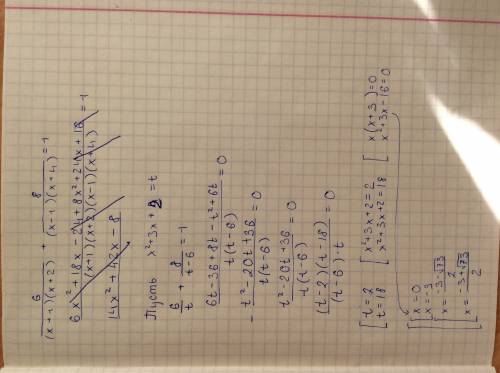 6/((x+1)(x+2)) + 8/((x-1)(x+4)) = 1
(6x²+18x-24+8x²+24x+18)/((x+1)(x+2)(x-1)(x+4)) = 1
14x²+42x-8
Пусть x²+3x+2=t
6/t + 8/(t-6) = 1
(6t-36+8t-t²+6t)/(t(t-6)) = 0
-(t²-20t+36)/(t(t-6)) = 0
(t²-20t+36)/(t(t-6)) = 0
((t-2)(t-18))/((t-6)·t) = 0
[t=2 [x²+3x+2=2 [x(x+3)=0
[t=18 [x²+3x+2=18 [x²+3x-16=0
[x=0
[x=-3
[x=(-3-√73)/2
[x=(-3+√73)/2